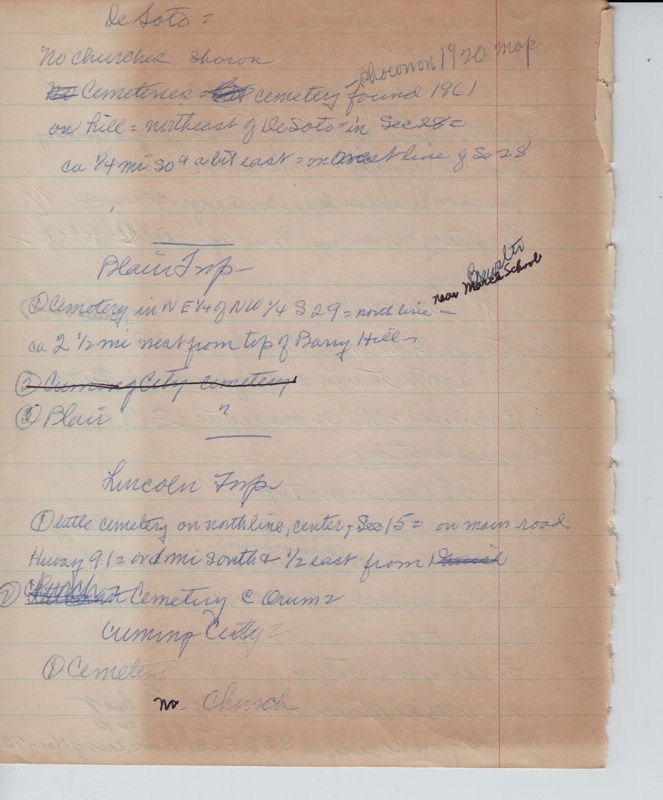 De Soto =
No churches shown
shown on 1920 map
No Cemeteries cemetery found 1961
on hill = northeast of De Soto = in Sec 28 =
ca 1/4 mi So & a bit east = on West line of So 28
Blair Twp -
Brewster
near School
① Cemetery in N E 1/4 of NW 1/4 S 29 = north line -
ca 2 1/2 mi west from top of Barry Hill -
② Cuming City cemetery
③ Blair "
Lincoln Twp -
① little cemetery on north line, center, Sec 15 = on main road
Hiway 91 = mi south & 1/2 east from Danish
② Church Cemetery C Orum =
Cuming City =
① Cemetery
no Church